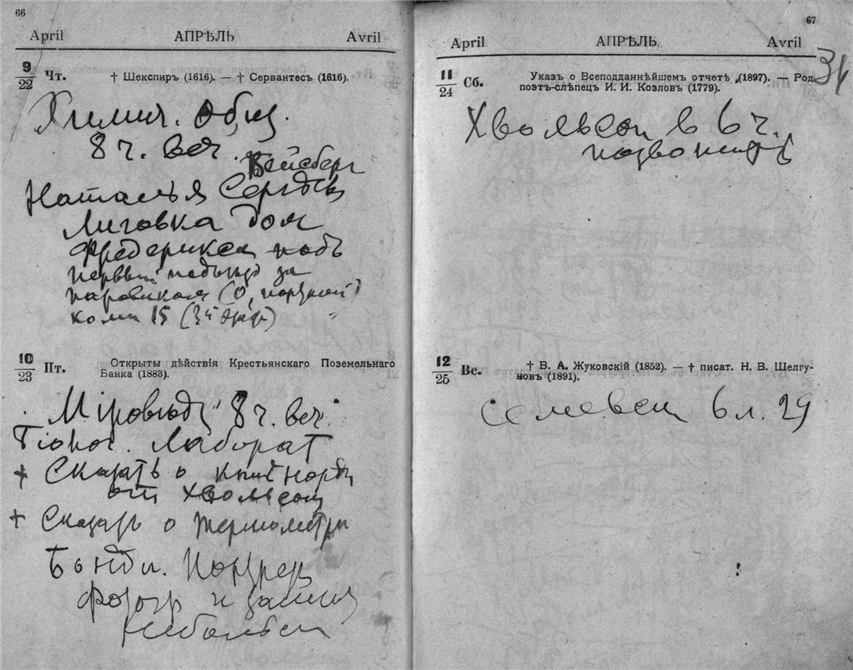 66
April АПРѢЛЬ Avril
9/22 Чт. † Шекспиръ (1616). — † Сервантесъ (1616).
Химич. Общ.
8 ч. веч.
Вейсберг
Наталья Сергѣев
Лиговка дом
Фредерикса
первый подъезд за
паровиком
комн 15
10/23 Пт. Открыты дѣйствія Крестьянскаго Поземельнаго
Банка (1883).
Міровѣд 8 ч. веч.
Лаборат
+ Сказать о
от Хвольсон
+ Сказать о термометрѣ
и
67
April АПРѢЛЬ Avril
11/24 Сб. Указъ о Всеподданнѣйшемъ отчетѣ (1897). — Род.
поэтъ-слѣпецъ И. И. Козловъ (1779).
34
Хвольсон в 6 ч.
позвонить
12/25 Вс. † В. А. Жуковскій (1852). — † писат. Н. В. Шелгу-
новъ (1891).
6 л. 29